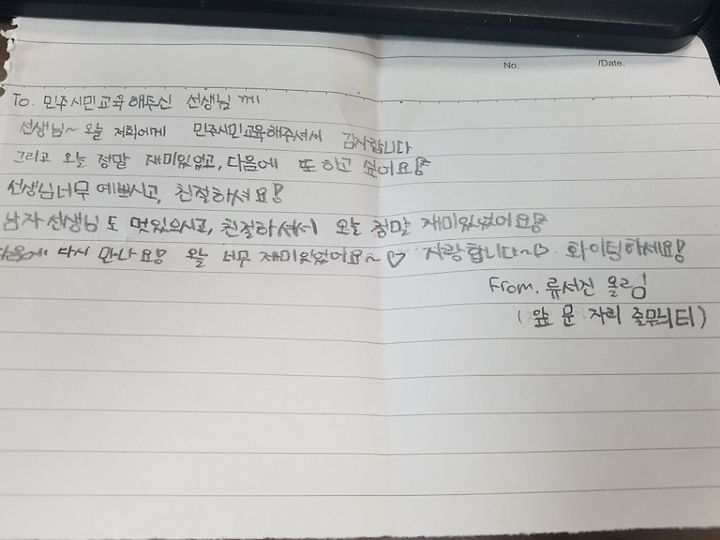 No. /Date.
To. 민주시민교육해주신 선생님께
선생님~ 오늘 저희에게 민주시민교육해주셔서 감사합니다
그리고 오늘 정말 재미있었고, 다음에 또 하고 싶어요!
선생님너무 예쁘시고, 친절하셔요!
남자선생님도 멋있으시고, 친절하셔서 오늘 정말 재미있었어요!
다음에 다시 만나요! 오늘 너무 재미있었어요~♡ 사랑합니다~♡. 화이팅하세요!
From. 류서진 올림
(앞 문 자리 줄무늬티)